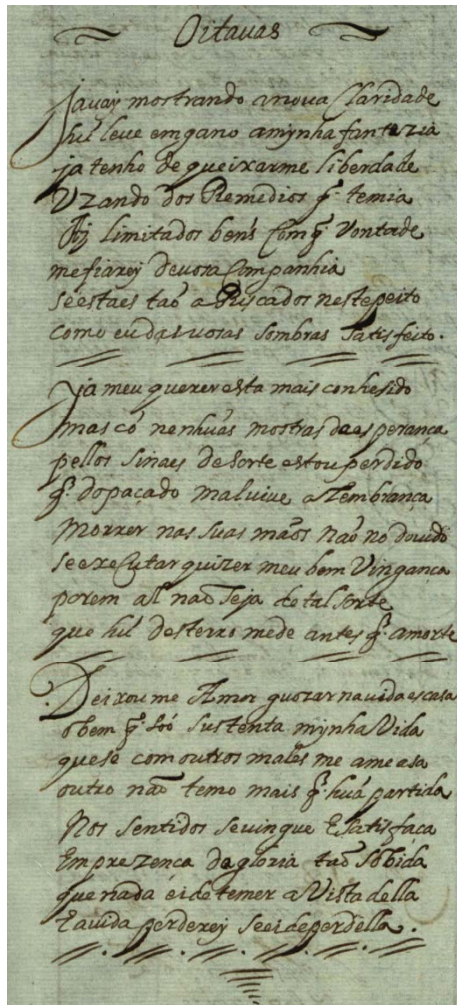 Oitauas
Jauay mostrando a noua Claridade
hu leue emgano a mynha fantezia
ja tenho de queixarme liberdade
Vzando dos Remedios q̃ temia
limitados bens Com q̃ Vontade
mefiarey deuosa Companhia
se estaes taõ a Buscados nestepeito
como eu das uosas Sombras Satisfeito.
Ja meu querer esta mais conhesido
mas cõ nenhuãs mostras da esperança
pellos Sinaes de Sorte estou perdido
q̃ do paçado mal uiue a Lembrança
Morrer nas Suas maõs naõ no douido
se exeCutar quizer meu bem Vingança
porem aly naõ Seja de tal Sorte
que hũ desterro mede antes q̃ amorte
Deixoume Amor guozar nauida escasa
o bem q̃ soó Sustenta mynha Vida
quese com outros males me ameasa
outro naõ temo mais q̃ huã partida
Nos Sentidos seuingue E Satisfaca
Em prezenca da gloria taõ Sobida
que nada ei de temer a Vista della
E auida perderey se ei deperdella.